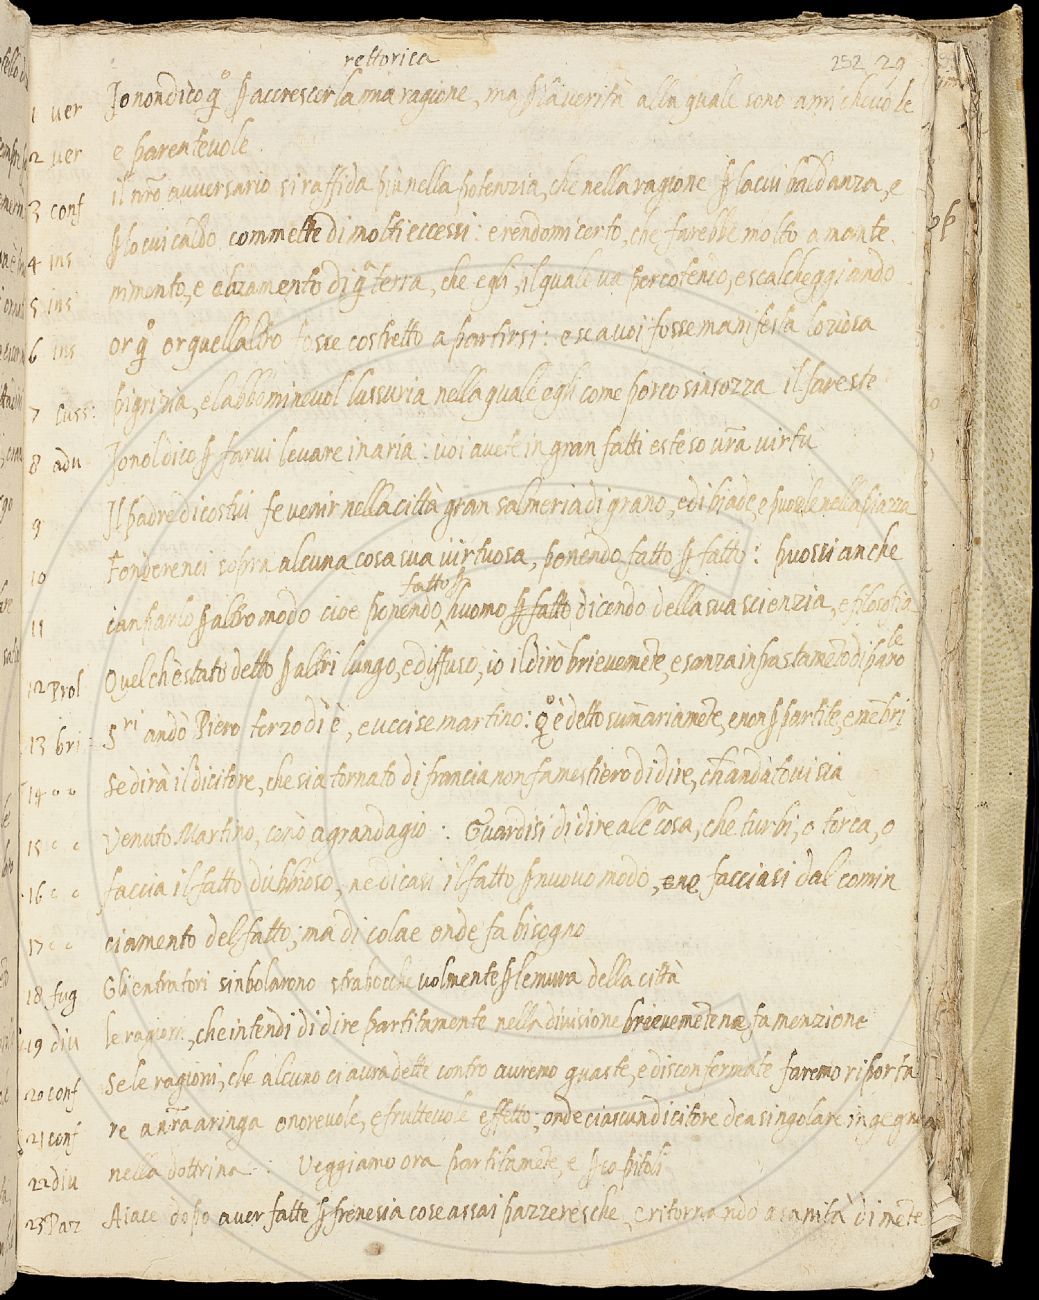 rettorica 252 29
1 ver Jo non dico qo p accrescer la mia ragione, ma p la verità alla quale sono amichevole
2 ver e parentevole
3 conf il nr̃o avversario si raffida più nella potenzia, che nella ragione p la cui baldanza, e
4 ins p lo cui caldo commette di molti eccessi: e rendomi certo, che farebbe molto a mante
5 ins nimento, e alzamento di qa terra, che egli, il quale va percotendo, e scalcheggiando
6 ins or qo or quell altro fosse costretto a partirsi: e se a voi fosse manifesta l oziosa
7 luss: pigrizia, e l abbominevol lussuria nella quale egli come porco si insozza il fareste
8 adu Jo nol dico p farvi levare in aria: voi avete in gran fatti esteso vr̃a virtù
9 Il padre di costui fe venir nella città gran salmeria di grano, e di biade, e puosele nella piazza
10 sopra alcuna cosa sua virtuosa, ponendo fatto p fatto: puossi anche
fatto p
11 p altro modo cioè ponendo huomo p fatto dicendo della sua scienzia, e filosofia
12 Prol Quel ch è stato detto p altri lungo, e diffuso, io il dirò brievemēte, e sanza inpastamēto di parole
13 bri: Sri andò Piero terzo dì è, e uccise martino: qo è detto sum̃ariamēte, e non p partite, e mēbri
14 Se dirà il dicitore, che sia tornato di francia non fa mestiero di dire, ch andato vi sia
15 Venuto Martino, a grand agio :. Guardisi di dire alca cosa, che turbi, o torca, o
16 faccia il fatto dubbioso, ne dicasi il fatto p nuovo modo, ene facciasi dal comin
17 ciamento del fatto; ma di colae onde fa bisogno
18 fug Gli entratori sinbolarono strabocchevolmente p le mura della città
19 diu le ragioni, che intendi di dire partitamente nella divisione brievemēte ne fa menzione
20 conf Se le ragioni, che alcuno ci avrà dette contro avremo guaste, e disconfermate faremo riporta
21 conf re a nr̃a aringa onorevole, e fruttevole effetto; onde ciascun dicitore dea singolare ingegno
22 diu nella dottrina : Veggiamo ora partitamēte, e p capitoli
23 Paz Aiace dopo aver fatte p frenesia cose assai pazzeresche, e ritornando a sanità di mēte